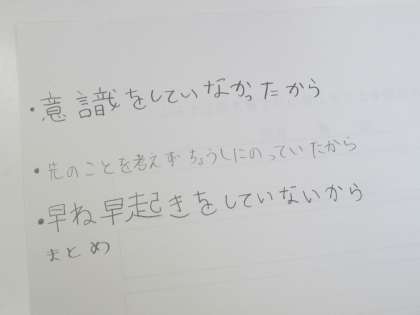 ・意識をしていなかったから
・先のことを考えずちょうしにのっていたから
・早ね早起きをしていないから
まとめ